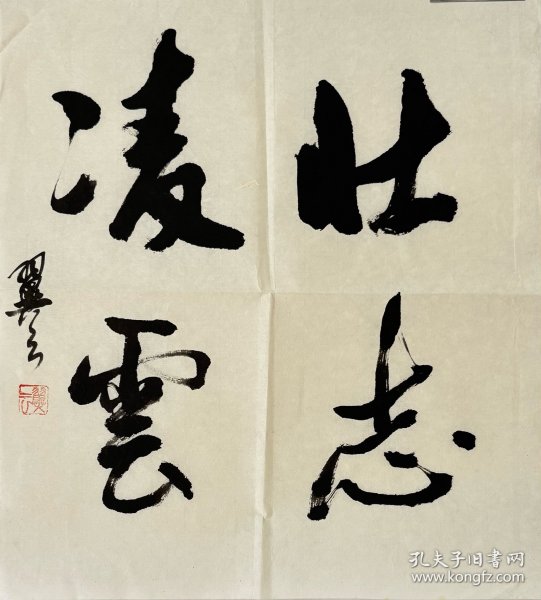 壮志
凌雲
翼云
孔夫子旧书网
www.kongfz.com